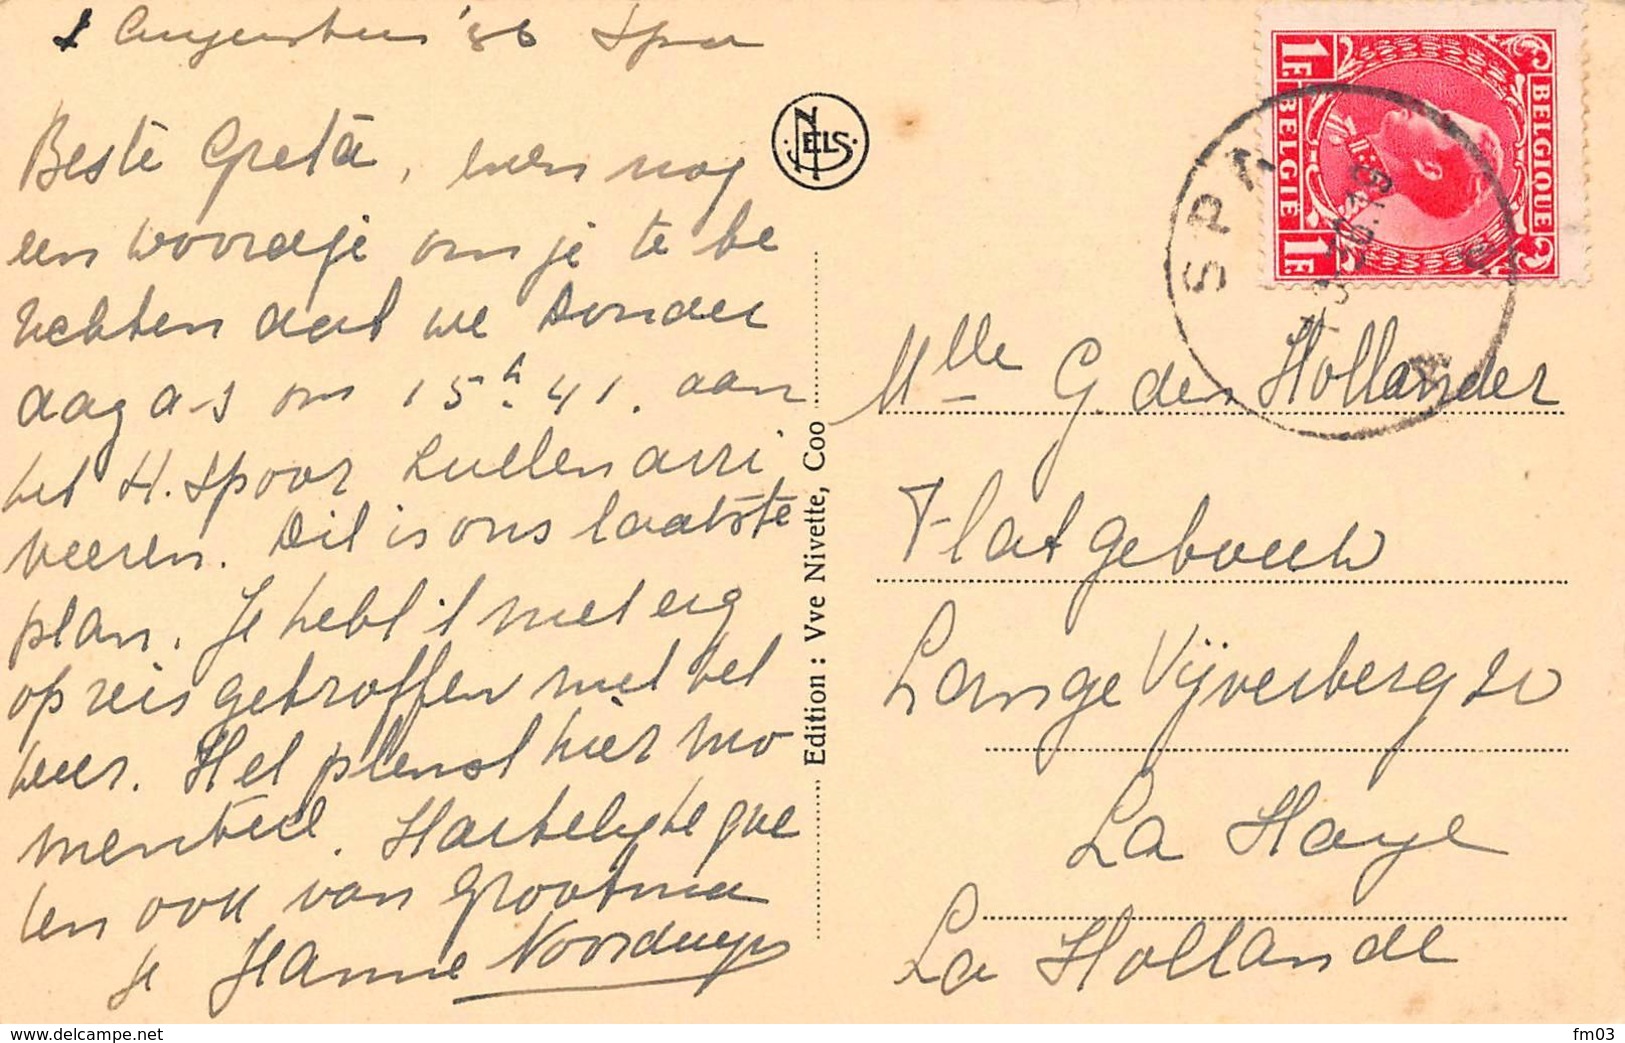 1 Augustus '36 Spa
Beste Greta, even nog
een woordje om je te be
richten dat we Donder
dag a-s om 15h.41. aan
het H. Spoor zullen arri
veeren. Dit is ons laatste
plan. Je hebt 't niet erg
op reis getroffen met het
weer. Het plenst hier mo
menteel. Hartelijke groe
ten ook van Grootma
je Hanne Noorduyn
NELS
Edition : Vve Nivette, Coo
1F. BELGIË 1F.
BELGIQUE
SPA
Mlle G. den Hollander
Flatgebouw
Lange Vijverberg
La Haye
La Hollande
www.delcampe.net
fm03